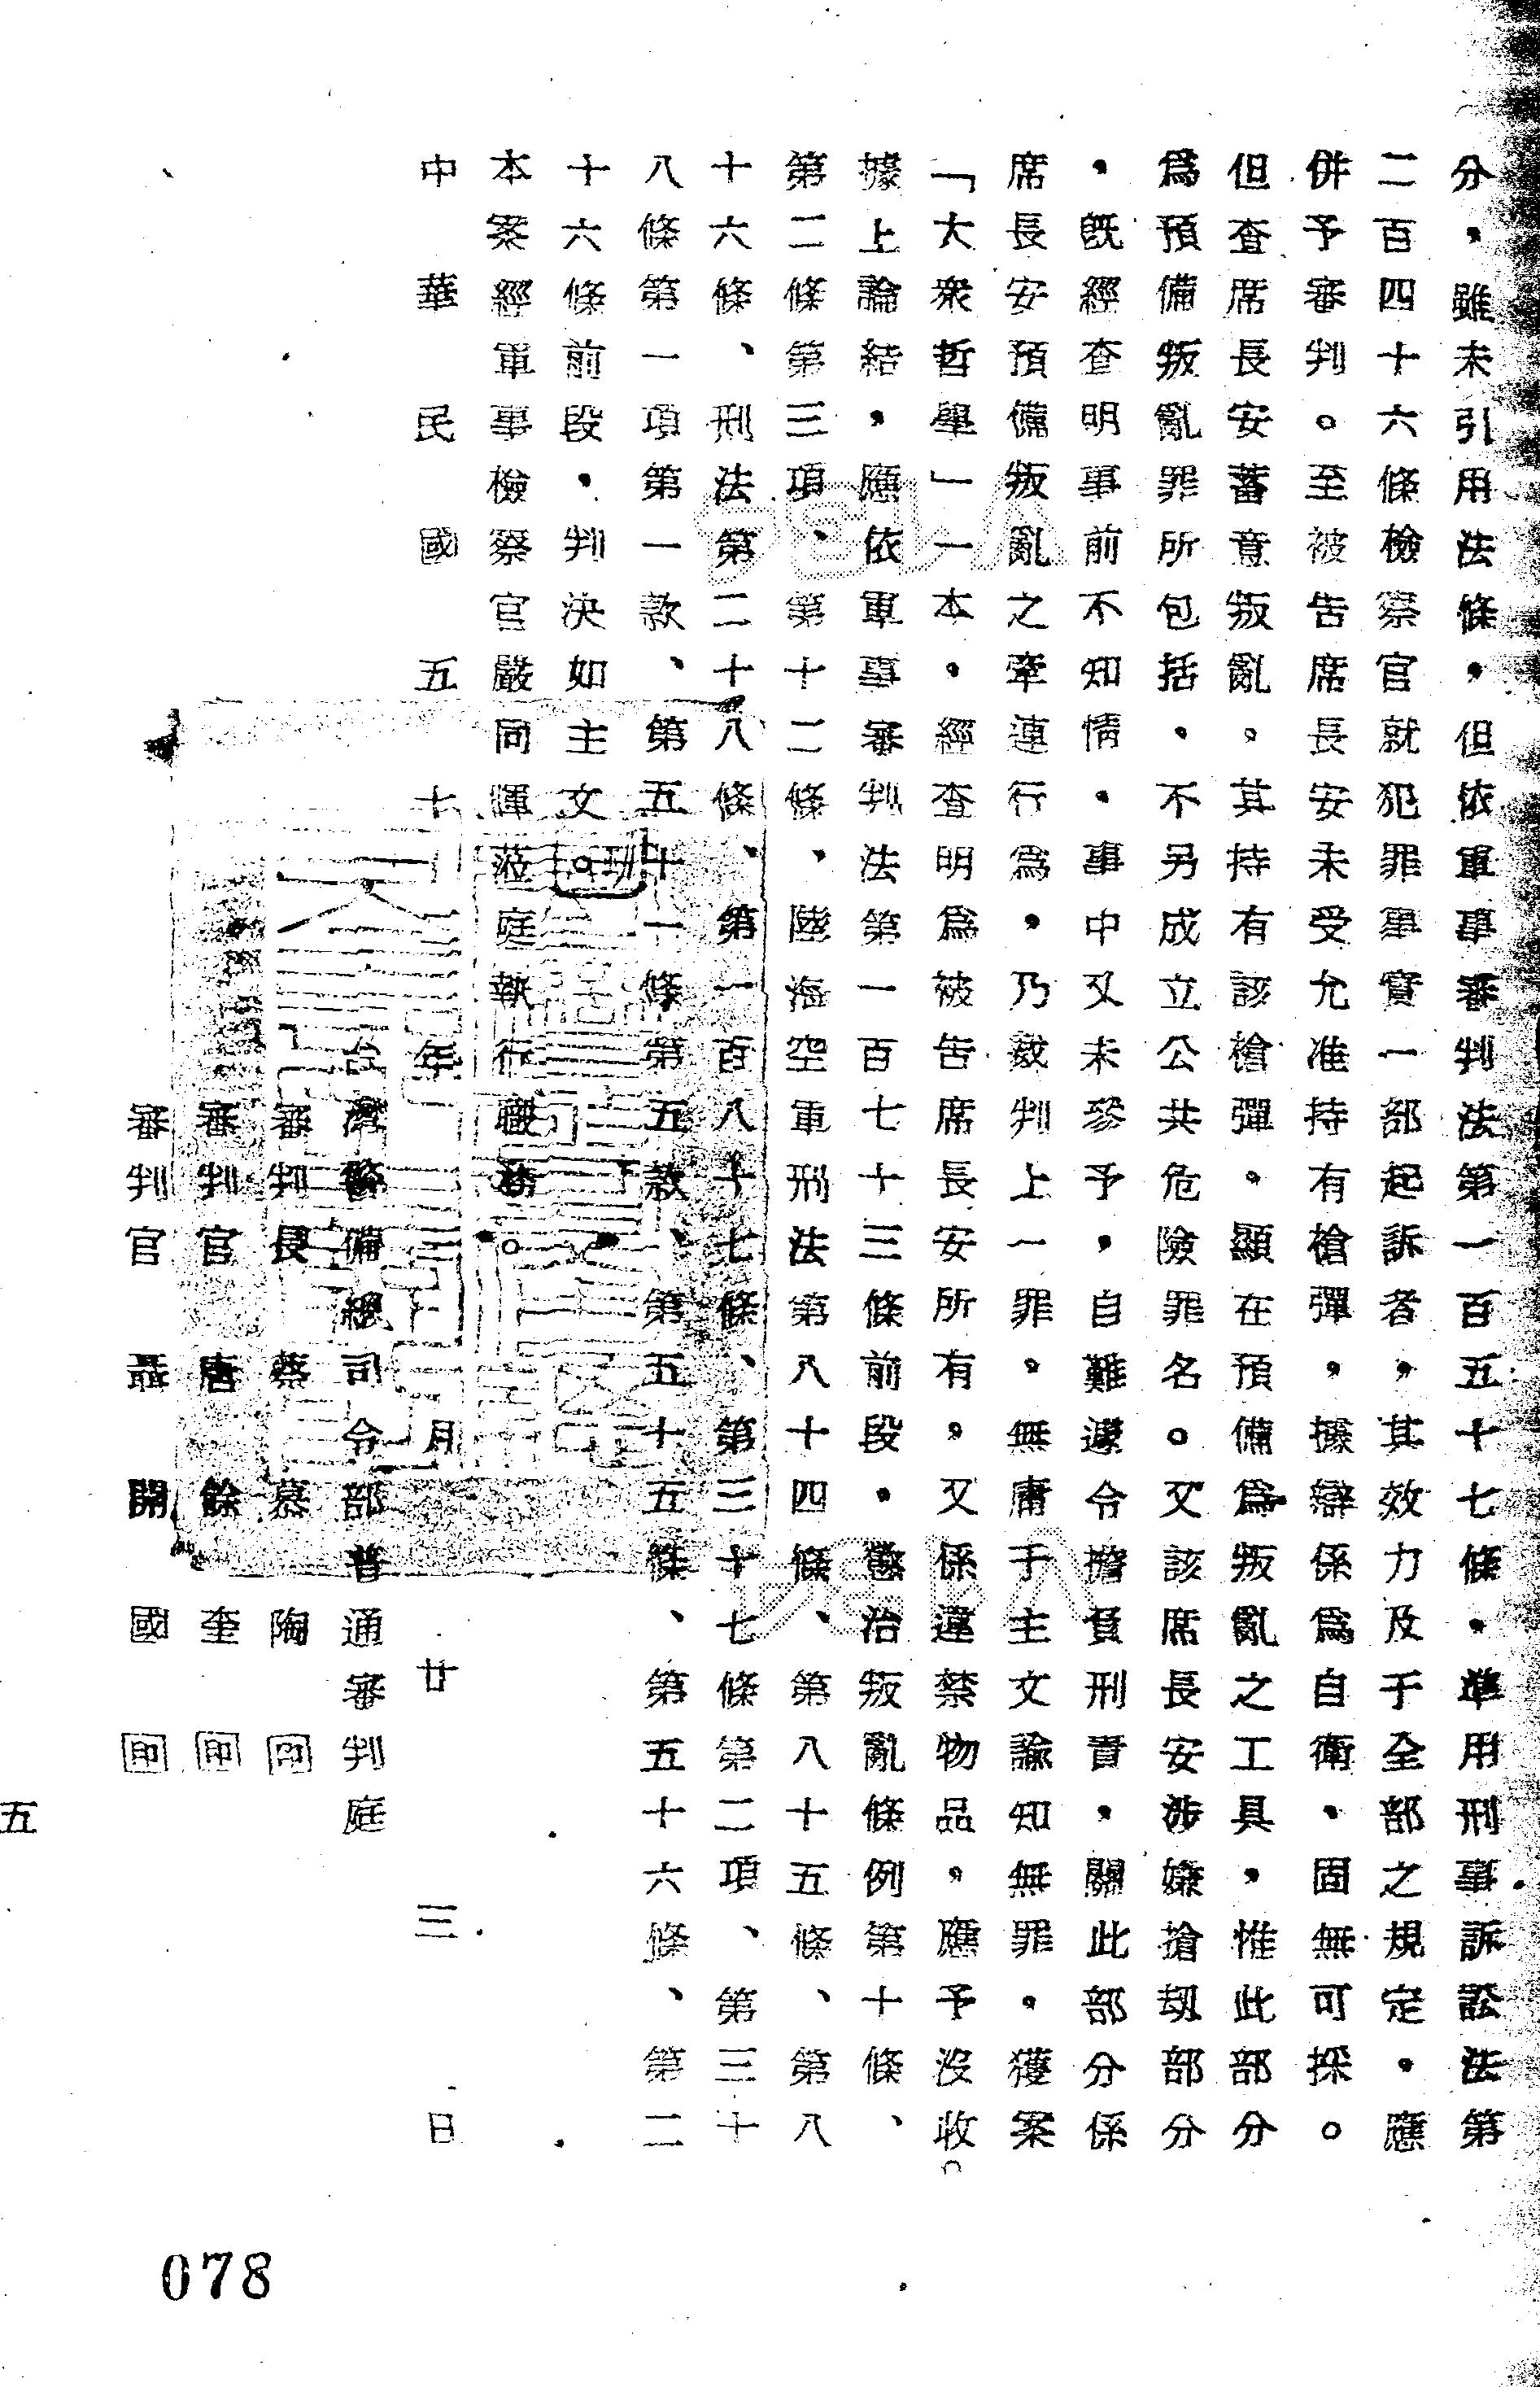 分，雖未引用法條，但依軍事審判法第一百五十七條，準用刑事訴訟法第
二百四十六條檢察官就犯罪事實一部起訴者，其效力及于全部之規定，應
併予審判。至被告席長安未受允准持有槍彈，據辯係爲自衛，固無可採。
但查席長安蓄意叛亂，其持有該槍彈，顯在預備爲叛亂之工具，惟此部分
爲預備叛亂罪所包括，不另成立公共危險罪名。又該席長安涉嫌搶刼部分
，既經查明事前不知情，事中又未參予，自難遽令擔負刑責，關此部分係
席長安預備叛亂之牽連行爲，乃裁判上一罪。無庸于主文諭知無罪。獲案
「大衆哲學」一本，經查明爲被告席長安所有，又係違禁物品，應予沒收
據上論結，應依軍事審判法第一百七十三條前段，懲治叛亂條例第十條、
第二條第三項、第十二條、陸海空軍刑法第八十四條、第八十五條、第八
十六條、刑法第二十八條、第一百八十七條、第三十七條第二項、第三十
八條第一項第一款、第五十一條第五款、第五十五條、第五十六條、第二
十六條前段，判決如主文。
本案經軍事檢察官嚴同輝蒞庭執行職務。
中華民國五十二年三月廿三日
台灣警備總司令部普通審判庭
審判長 蔡慕陶 印
審判官 唐餘奎 印
審判官 聶開國 印
五
078